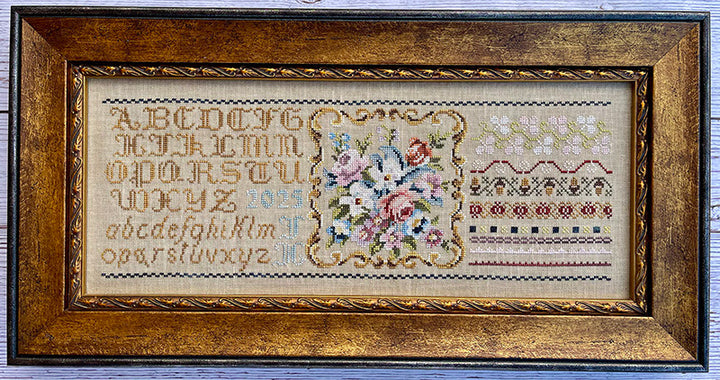 ABCDEFG
HIJKLMN
OPQRSTU
WXYZ 2025
abcdefghiklm
opqrstuvxyz